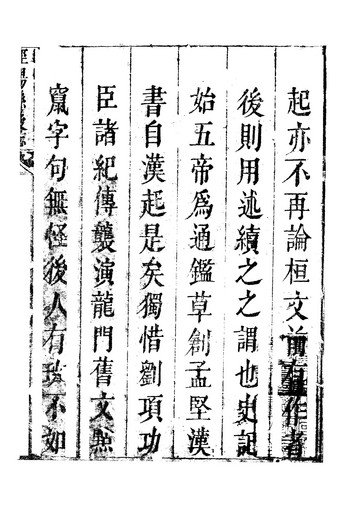 起亦不再論桓文前有作者
後則用述續之之謂也史記
始五帝爲通鑑草創孟堅漢
書自漢起是矣獨惜劉項功
臣諸紀傳襲演龍門舊文㸃
竄字句無怪後人有班不如